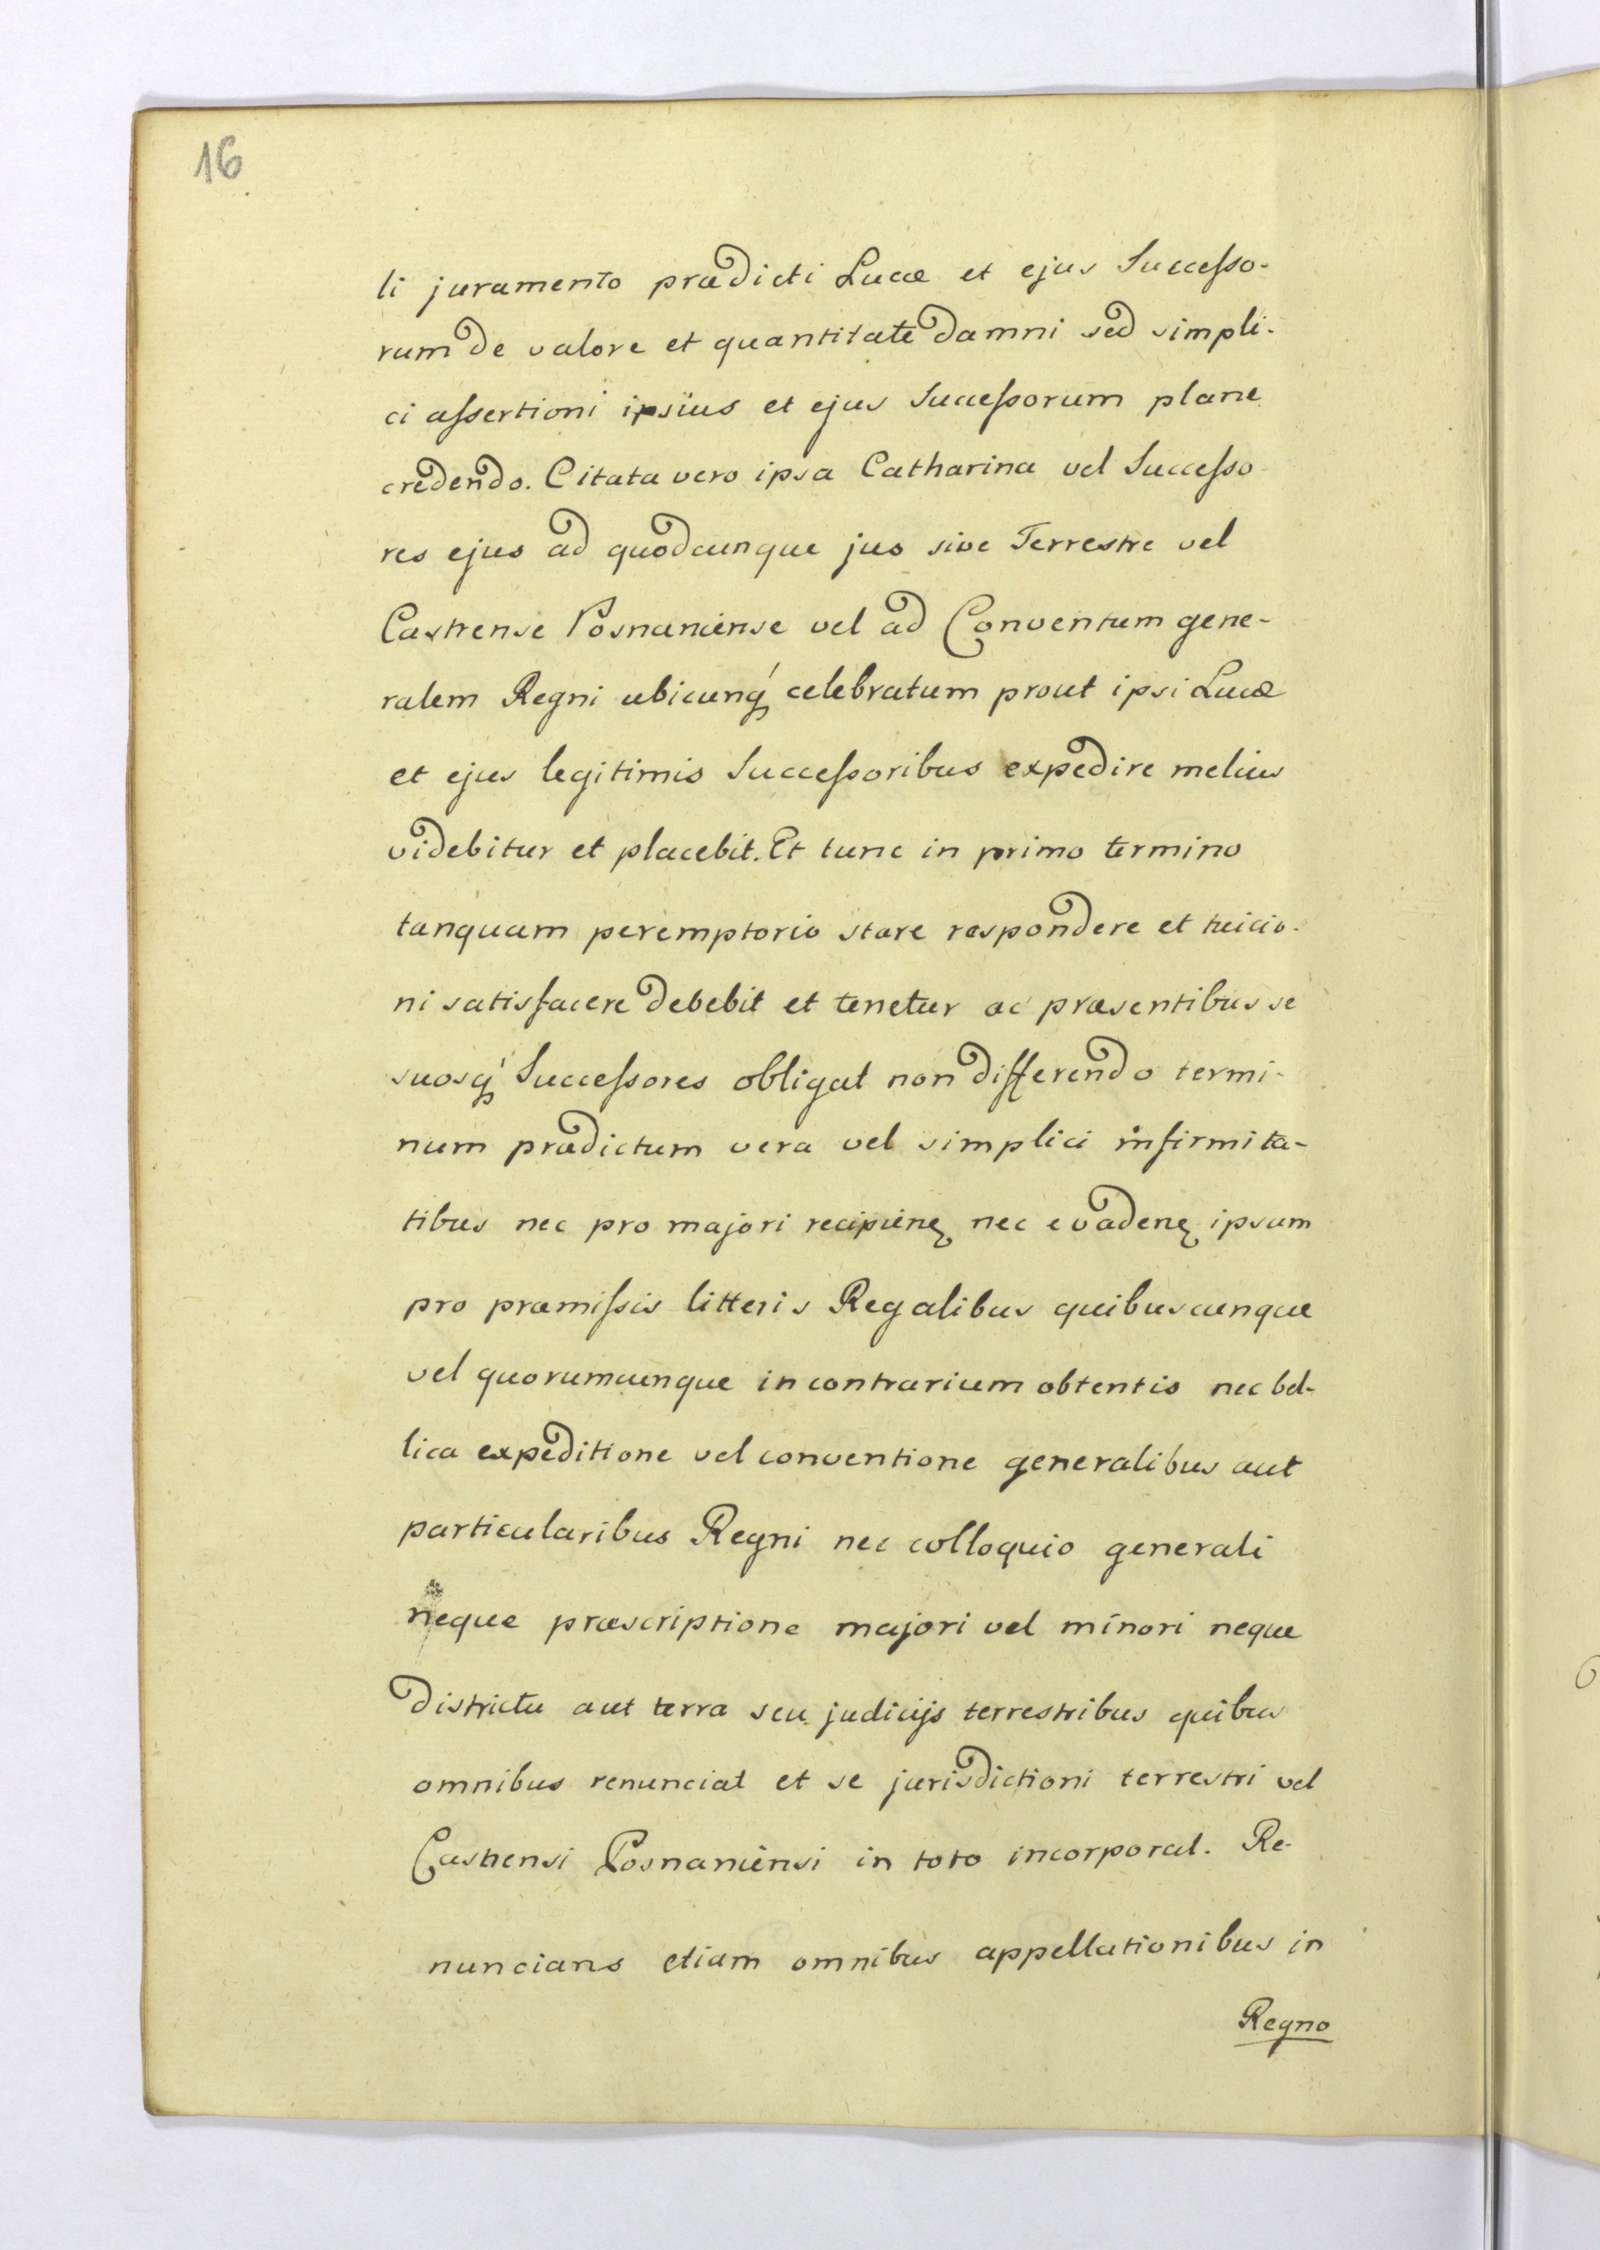 16
li juramento prædicti Lucæ et ejus Successo-
rum de valore et quantitate damni sed simpli-
ci assertioni ipsius et ejus Successorum plane
credendo. Citata vero ipsa Catharina vel Successo
res ejus ad quodcunque jus sive Terrestre vel
Castrense Posnaniense vel ad Conventum gene-
ralem Regni ubicunq́ celebratum prout ipsi Lucæ
et ejus legitimis Successoribus expedire melius
videbitur et placebit. Et tunc in primo termino
tanquam peremptorio stare respondere et tuicio-
ni satisfacere debebit et tenetur ac præsentibus se
suosq́ Successores obligat non differendo termi-
num prædictum vera vel simplici infirmita-
tibus nec pro majori recipienꝫ nec evadenꝫ ipsum
pro præmissis litteris Regalibus quibuscunque
vel quorumcunque in contrarium obtentis nec bel-
lica expeditione vel conventione generalibus aut
particularibus Regni nec colloquio generali
neque præscriptione majori vel minori neque
districtu aut terra seu judicijs terrestribus quibus
omnibus renunciat et se jurisdictioni terrestri vel
Castrensi Posnaniensi in toto incorporat. Re-
nuncians etiam omnibus appellationibus in
Regno